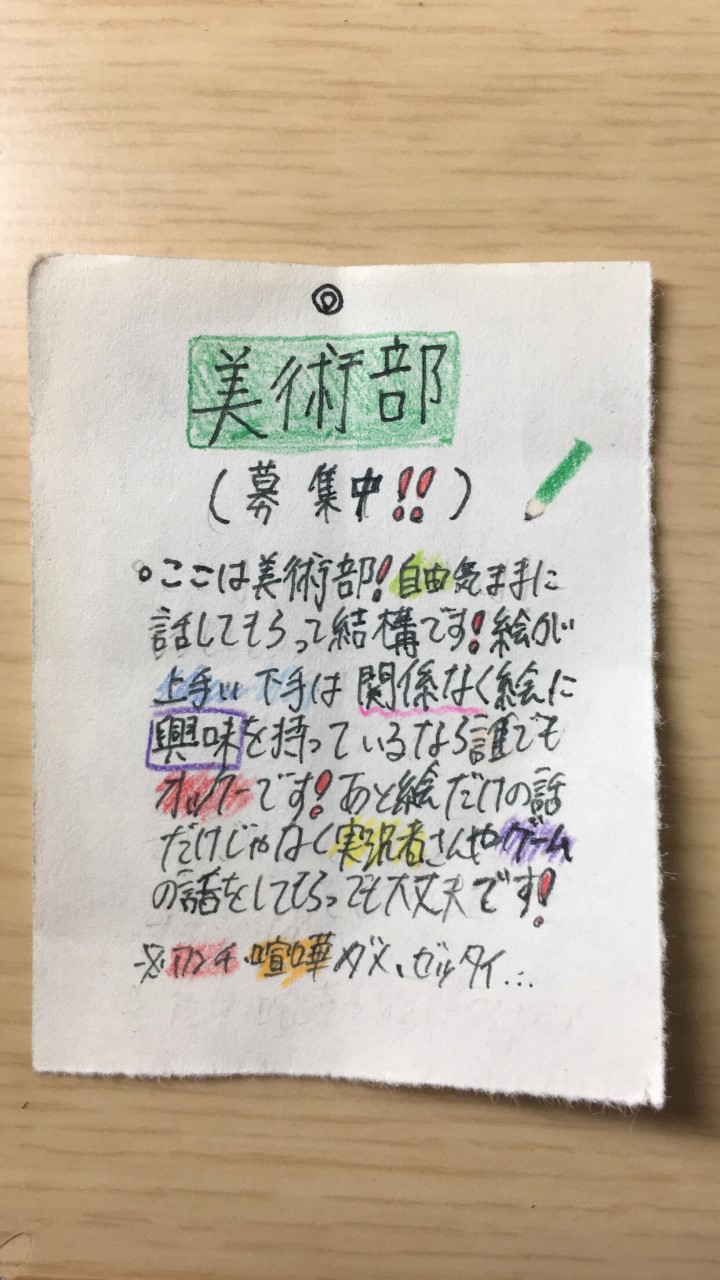 美術部
(募集中!!)
。ここは美術部!自由気ままに
話してもらって結構です!絵が
上手い下手は関係なく絵に
興味を持っているなら誰でも
オッケーです!あと絵だけの話
だけじゃなく実況者さんやゲーム
の話をしてもらっても大丈夫です!
※アンチ・喧嘩ダメ、ゼッタイ...